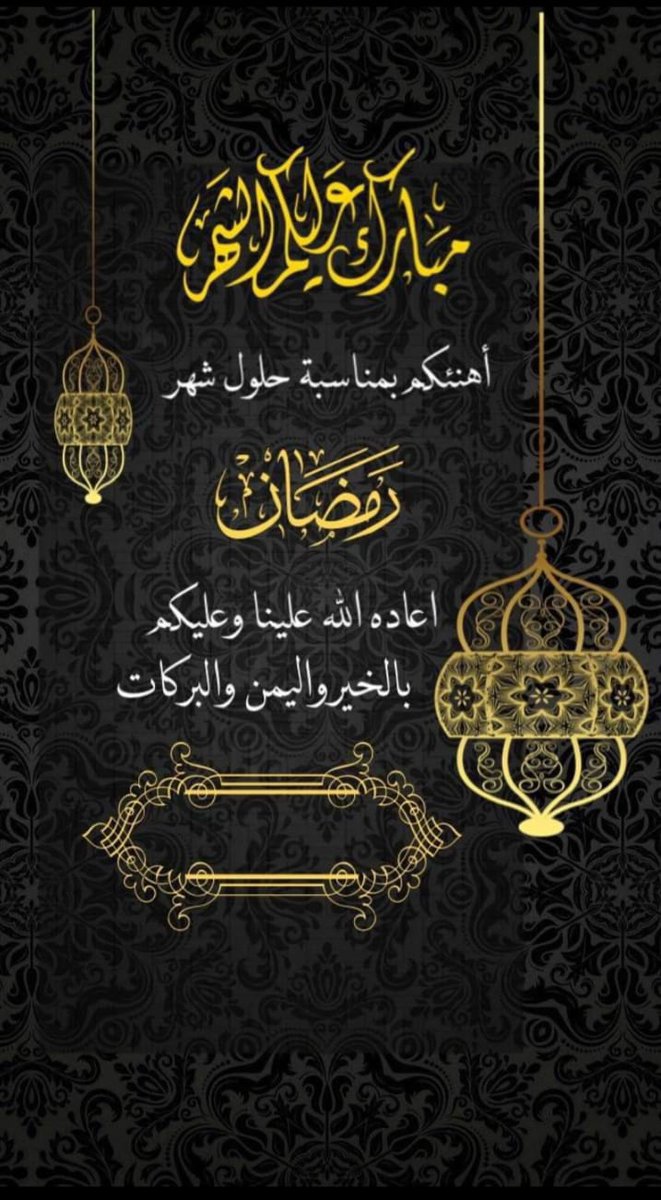 مبارك عليكم الشهر
أهنئكم بمناسبة حلول شهر
رمضان
اعاده الله علينا وعليكم
بالخير واليمن والبركات